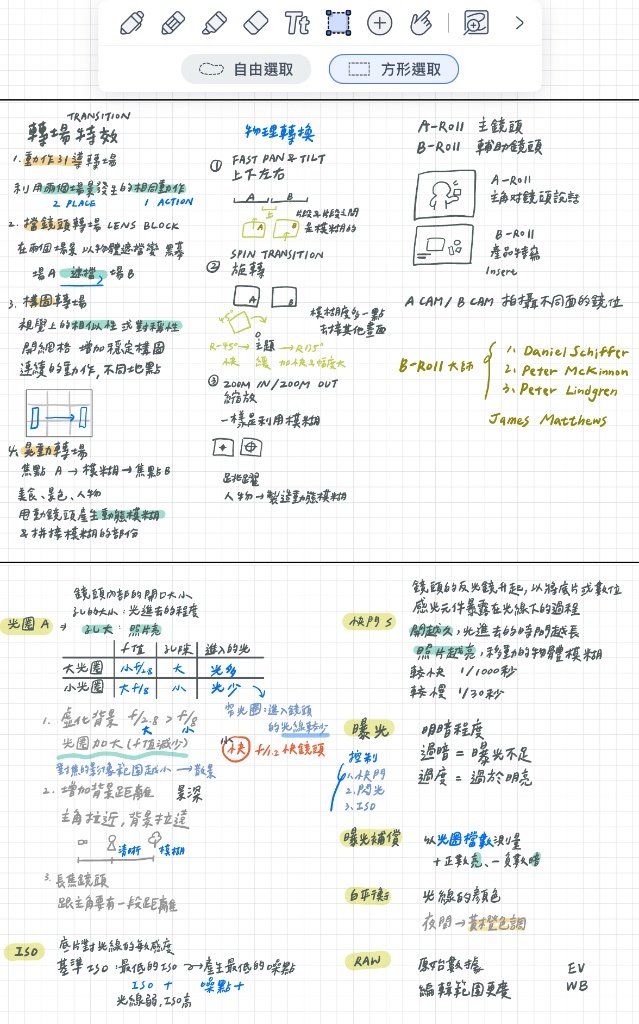 自由選取
方形選取
TRANSITION
轉場特效
1. 動作引導轉場
利用兩個場景發生的相同動作
2 PLACE 1 ACTION
2. 擋鏡頭轉場 LENS BLOCK
在兩個場景以物體遮擋變黑幕
場A 遮擋 場B
3. 構圖轉場
視覺上的相似性或對稱性
開網格 增加穩定構圖
連續的動作,不同地點
4. 晃動轉場
焦點 A → 模糊 → 焦點 B
美食、景色、人物
甩動鏡頭產生動態模糊
&拼接模糊的部份
物理轉換
① FAST PAN & TILT
上下左右
A B
A B
是模糊的
② SPIN TRANSITION
旋轉
A B
45°
模糊度多一點
去接其他畫面
R-45° → 主題 → R175°
快 緩 加快且幅度大
③ ZOOM IN/ZOOM OUT
縮放
一樣是利用模糊
跳躍
人物→製造動態模糊
A-Roll 主鏡頭
B-Roll 輔助鏡頭
A-Roll
主角對鏡頭說話
B-Roll
產品特寫
Insert
A CAM/B CAM 拍攝不同面的鏡位
B-Roll 大師
1. Daniel Schiffer
2. Peter McKinnon
3. Peter Lindgren
James Matthews
鏡頭內部的開口大小
孔的大小:光進去的程度
光圈 A → 孔大:照片亮
f值 孔徑 進入的光
大光圈 小f/2.8 大 光多
小光圈 大f/8 小 光少
窄光圈:進入鏡頭
的光線較少
1. 虛化背景 f/2.8 > f/8
大 小
光圈加大(f值減少)
小 快 f/1.2 快鏡頭
對焦的影像範圍越小 → 散景
2. 增加背景距離 景深
主角拉近,背景拉遠
清晰 模糊
3. 長焦鏡頭
跟主角要有一段距離
ISO 底片對光線的敏感度
基準ISO:最低的ISO → 產生最低的噪點
ISO + 噪點 +
光線弱,ISO高
鏡頭的反光鏡升起,以將底片或數位
感光元件暴露在光線下的過程
快門 S 開越久,光進去的時間越長
照片越亮,移動的物體模糊
較快 1/1000秒
較慢 1/30秒
曝光 明暗程度
過暗 = 曝光不足
過度 = 過於明亮
控制
1. 快門
2. 閃光
3. ISO
曝光補償 以光圈檔數測量
+正數亮、-負數暗
白平衡 光線的顏色
夜間 → 黃橙色調
RAW 原始數據
編輯範圍更廣
EV
WB